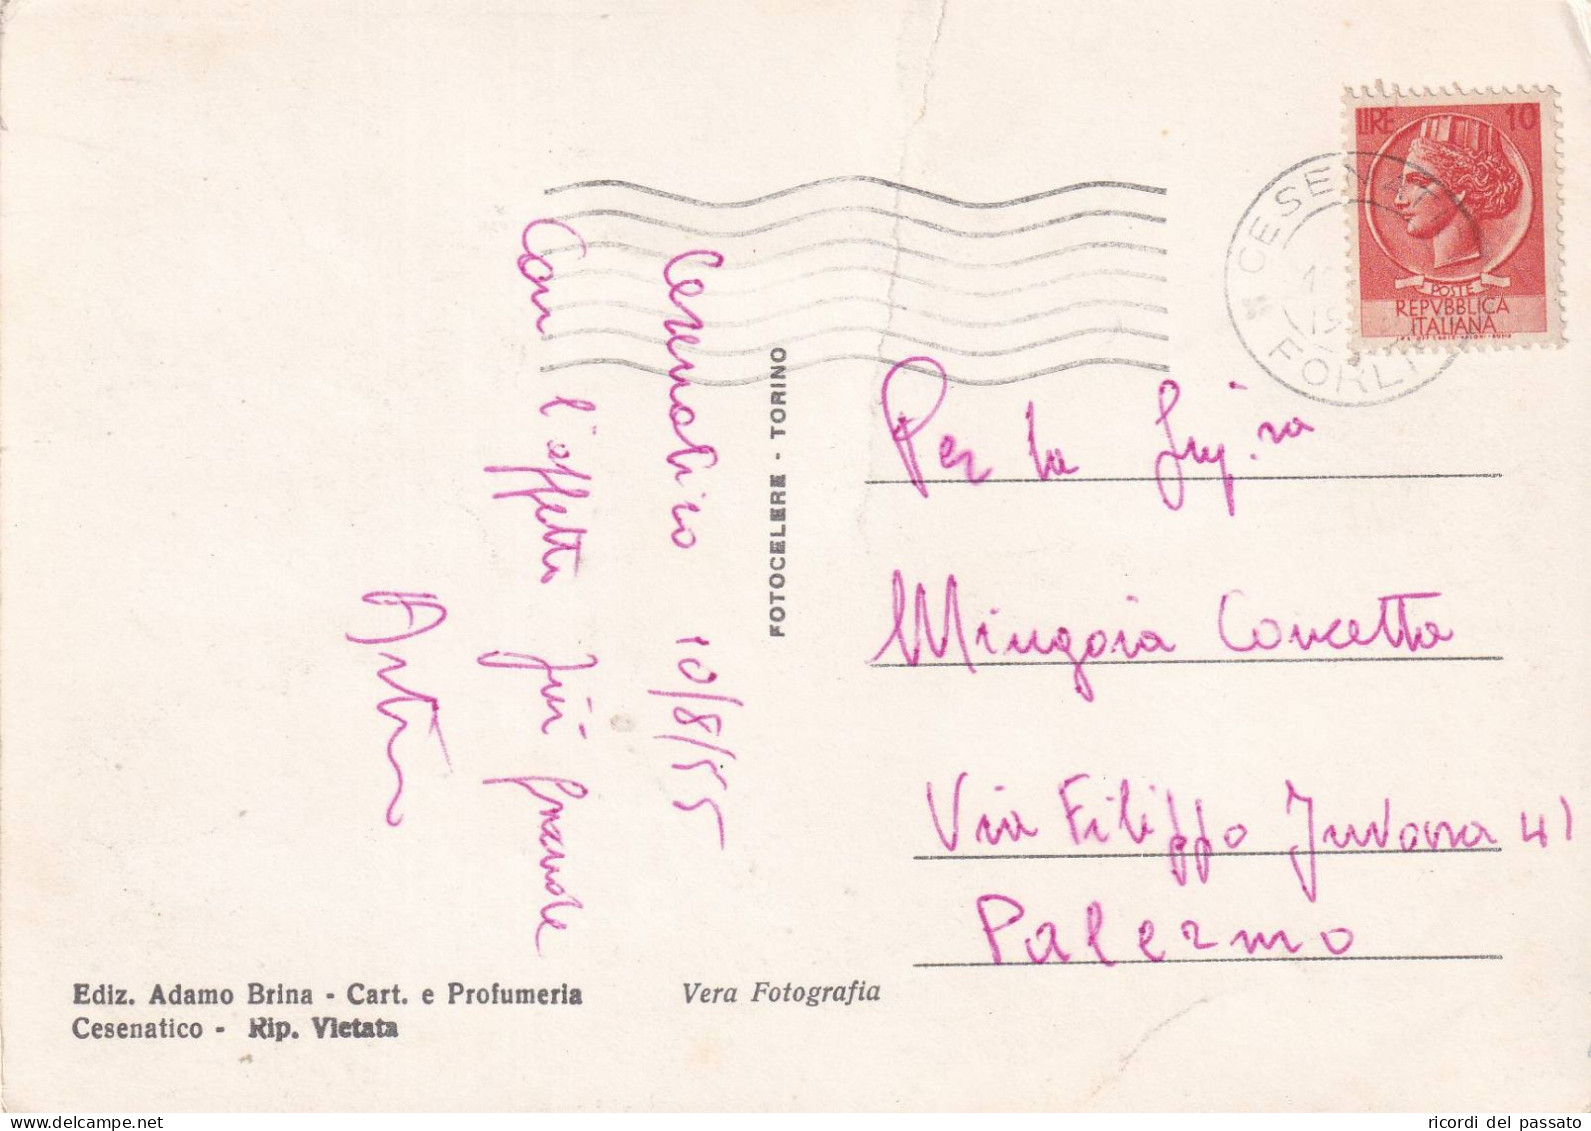 Cesenatico 10/8/55
Con l'affetto più grande
FOTOCELERE - TORINO
Ediz. Adamo Brina - Cart. e Profumeria
Cesenatico - Rip. Vietata
Vera Fotografia
LIRE 10
POSTE
REPVBBLICA
ITALIANA
CESENATI
FORLI
Per la Sig.ra
Mingoia Concetta
Via Filippo Juvara 41
Palermo
ricordi del passato